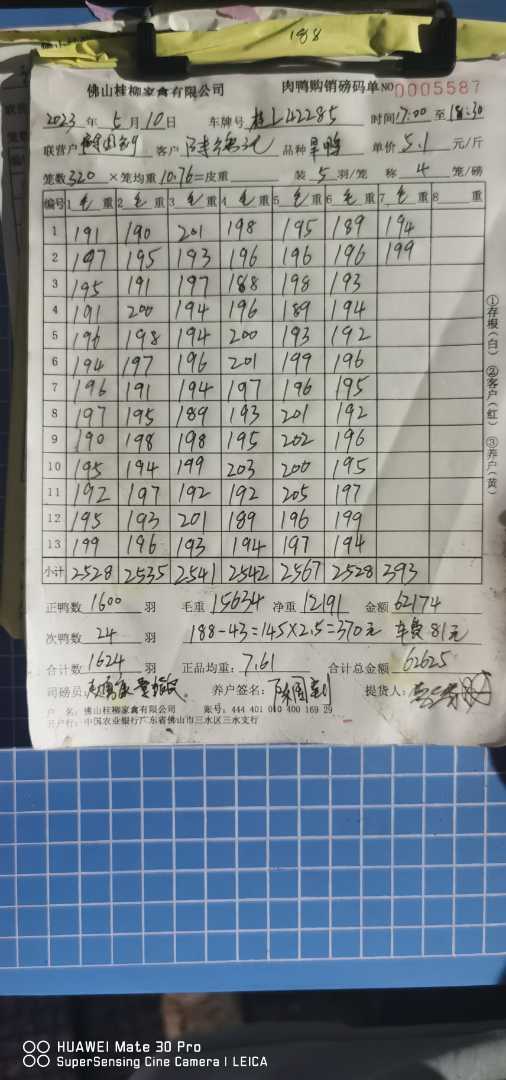 188
佛山桂柳家禽有限公司 肉鸭购销磅码单 NO 0005587
2023 年 5 月 10 日 车牌号 桂L42285 时间 17:00 至 18:30
联营户 客户 品种 旱鸭 单价 5.1 元/斤
笼数 320 × 笼均重 10.76 = 皮重 装 5 羽/笼 称 4 笼/磅
编号 1 毛 重 2 毛 重 3 毛 重 4 毛 重 5 毛 重 6 毛 重 7 毛 重 8 重
1 191 190 201 198 195 189 194
2 197 195 193 196 196 196 199
3 195 191 197 188 198 193
4 191 200 194 196 189 194
5 196 198 194 200 193 192
6 194 197 196 201 199 196
7 196 191 194 197 196 195
8 197 195 189 193 201 192
9 190 198 198 195 202 196
10 195 194 199 203 200 195
11 192 197 192 192 205 197
12 195 193 201 189 196 199
13 199 196 193 194 197 194
小计 2528 2535 2541 2542 2567 2528 393
①存根(白) ②客户(红) ③养户(黄)
正鸭数 1600 羽 毛重 15634 净重 12191 金额 62174
次鸭数 24 羽 188-43=145×2.5=370元 车费 81元
合计数 1624 羽 正品均重: 7.61 合计总金额 62625
司磅员: 养户签名: 提货人:
户 名: 佛山桂柳家禽有限公司 账号: 444 401 010 400 169 29
开户行: 中国农业银行广东省佛山市三水区三水支行
HUAWEI Mate 30 Pro
SuperSensing Cine Camera | LEICA